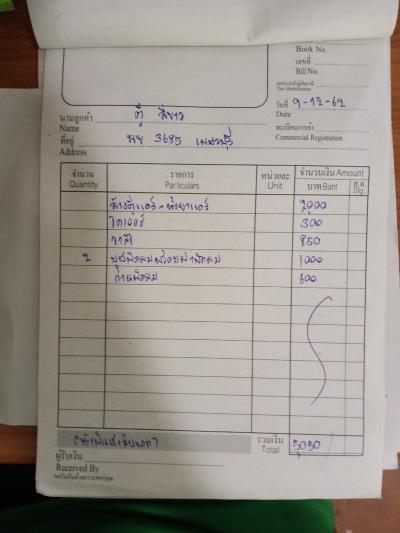 Book No.
เลขที่
Bill No.
เลขประจำตัวผู้เสียภาษี
Tax Identification
วันที่ 9-12-62
Date
นามลูกค้า ตู้ สีขาว
Name
ทะเบียนการค้า
Commercial Registration
ที่อยู่ นข 3685 เพชรบุรี
Address
จำนวน รายการ หน่วยละ จำนวนเงิน Amount
Quantity Particulars Unit บาท Baht ส.ต. Stg.
ล้างตู้แอร์-น้ำยาแอร์
ไดเออร์ 300
วาล์ว 850
2 1000
ก้านพัดลม 600
รวมเงิน
Total 5050
ผู้รับเงิน
Received By
ขอรับเงินด้วยความขอบคุณ